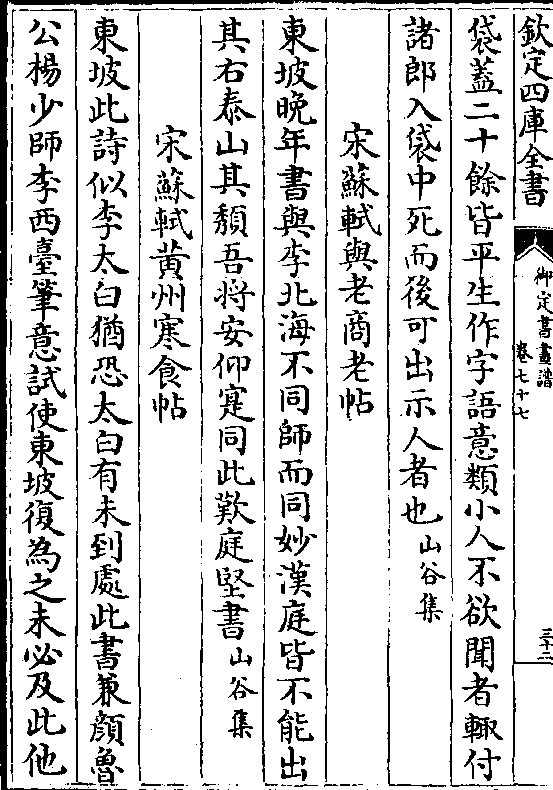 欽定四庫全書
御定書畫譜
卷七十七
三十二
袋蓋二十餘皆平生作字語意類小人不欲聞者輙付
諸郎入袋中死而後可出示人者也山谷集
宋蘇軾與老商老帖
東坡晚年書與李北海不同師而同妙漢庭皆不能出
其右泰山其頽吾将安仰寔同此歎庭堅書山谷集
宋蘇軾黄州寒食帖
東坡此詩似李太白猶恐太白有未到處此書兼顔魯
公楊少師李西臺筆意試使東坡復為之未必及此他